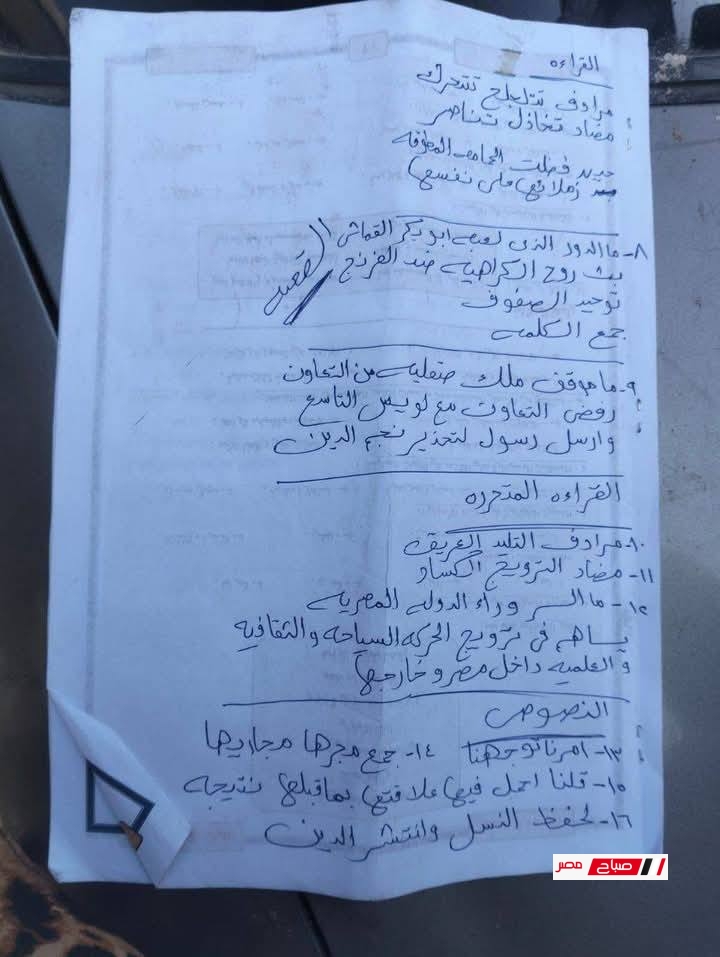 القراءه
مرادف تتلجلج تتحرك
مضاد تخاذل تناصر
فضلت الحمامه المطوقه
زملائها على نفسها
٨- ما الدور الذى لعبه ابو بكر القماش
بث روح الكراهيه ضد الفرنج
توحيد الصفوف
جمع الكلمه
٩- ما موقف ملك صقليه من التعاون
رفض التعاون مع لويس التاسع
وارسل رسول لتحذير نجم الدين
القراءه المتحرره
١٠- مرادف التليد العريق
١١- مضاد الترويج الكساد
١٢- ما السر وراء الدوله المصريه
يساهم فى ترويج الحركه السياحه والثقافيه
والعلميه داخل مصر وخارجها
النصوص
١٣- امرنا توجهنا ١٤- جمع مجرها مجاريها
١٥- قلنا احمل فيها علاقتها بما قبلها نتيجه
١٦- لحفظ النسل وانتشر الدين
صباح مصر